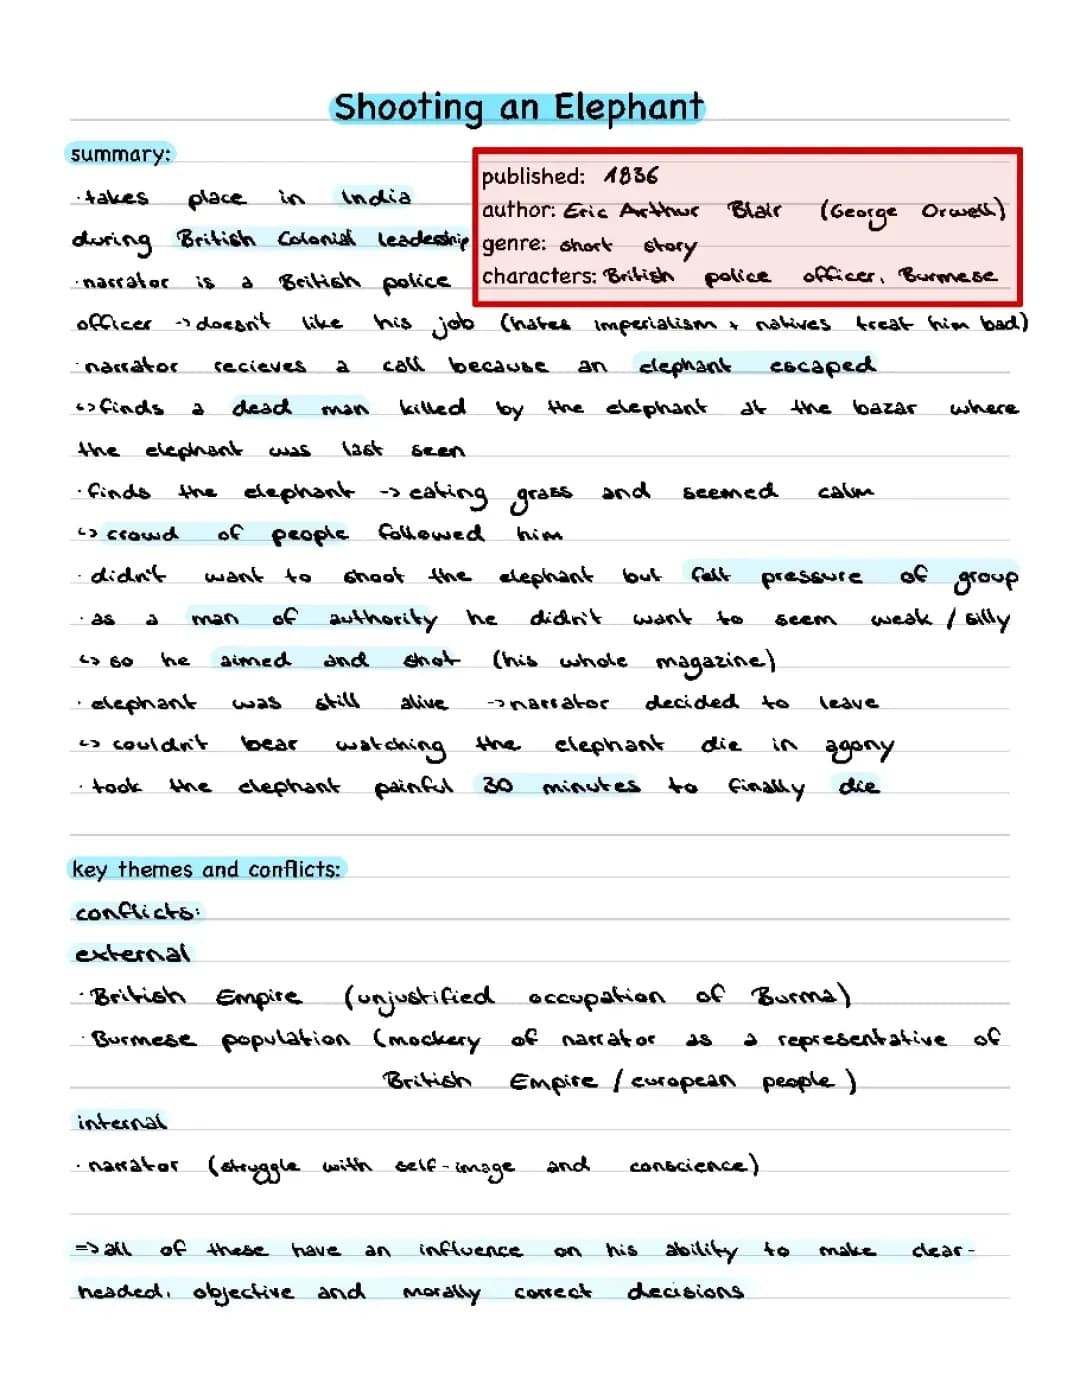 Shooting an Elephant
summary:
published: 1836
author: Eric Arthur Blair (George Orwell)
genre: short story
characters: British police officer, Burmese
· takes place in India
during British Colonial leadership
· narrator is a British police
officer -> doesn't like his job (hates imperialism + natives treat him bad)
· narrator recieves a call because an elephant escaped
↳ finds a dead man killed by the elephant at the bazar where
the elephant was last seen
· finds the elephant -> eating grass and seemed calm
↳ crowd of people followed him
· didn't want to shoot the elephant but felt pressure of group
· as a man of authority he didn't want to seem weak / silly
↳ so he aimed and shot (his whole magazine)
· elephant was still alive -> narrator decided to leave
↳ couldn't bear watching the elephant die in agony
· took the elephant painful 30 minutes to finally die
key themes and conflicts:
conflicts:
external
· British Empire (unjustified occupation of Burma)
· Burmese population (mockery of narrator as a representative of
British Empire / european people)
internal
· narrator (struggle with self-image and conscience)
=> all of these have an influence on his ability to make clear-
headed, objective and morally correct decisions